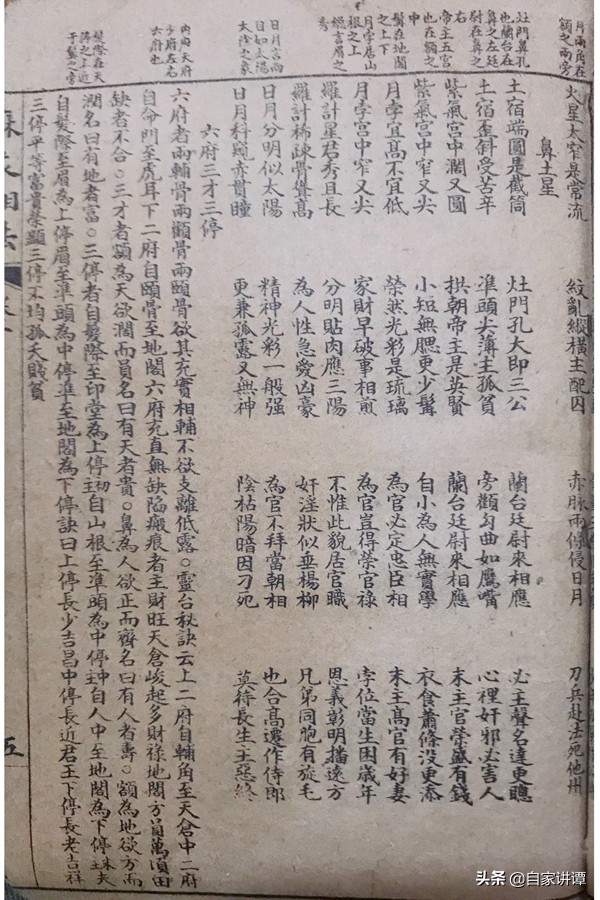 月兩角在
額之兩旁
灶門鼻孔
也蘭台在
鼻之左廷
尉在鼻之
右
帝主五官
也在額之
中
髯在地閣
之上下
月孛居山
根之上
總言眉之
秀
日月言兩
目如太陽
太陰之象
內面天府
少府左右
六府也
髮際在天
于髮之旁
火星太窄是常流 紋亂縱橫主配囚 赤脉兩條侵日月 刀兵赴法死他州
鼻土星
土宿端圓是截筒 灶門孔大即三公 蘭台廷尉來相應 必主聲名達更聰
土宿歪斜受苦辛 準頭尖薄主孤貧 旁觀勾曲如鷹嘴 心裡奸邪必害人
紫氣宮中濶又圓 拱朝帝主是英賢 蘭台廷尉來相應 末主官榮盛有錢
紫氣宮中窄又尖 小短無腮更少髯 自小為人無實學 衣食蕭條沒更添
月孛宜高不宜低 榮然光彩是琉璃 為官必定忠臣相 末主高官有好妻
月孛宮中窄又尖 家財早破事相煎 為官豈得榮官祿 孛位當生困歲年
羅計星君秀且長 分明貼肉應三陽 不惟此貌居官職 恩義彰明播遠方
羅計稀疎骨聳高 為人性急愛凶豪 奸淫狀似垂楊柳 兄弟同胞有旋毛
日月分明似太陽 精神光彩一般強 為官不拜當朝相 也合高遷作侍郎
日月斜窺赤貫瞳 更兼孤露又無神 陰枯陽暗因刀死 莫待長生主惡終
六府三才三停
六府者兩輔骨兩顴骨兩頤骨欲其充實相輔不欲支離低露。靈台秘訣云上二府自輔角至天倉中二府
自命門至虎耳下二府自頤骨至地閣六府充直無缺陷瘢痕者主財旺天倉峻起多財祿地閣方員萬頃田
缺者不合。三才者額為天欲濶而員名曰有天者貴。鼻為人欲正而齊名曰有人者壽。頦為地欲方而
濶名曰有地者富。三停者自髮際至印堂為上停初主自山根至準頭為中停主中自人中至地閣為下停主末夫
自髮際至眉為上停眉至準頭為中停準至地閣為下停訣曰上停長少吉昌中停長近君王下停長老吉祥
三停平等富貴榮顯三停不均孤夭賤貧
麻衣相法
五
头条 @自家讲谭